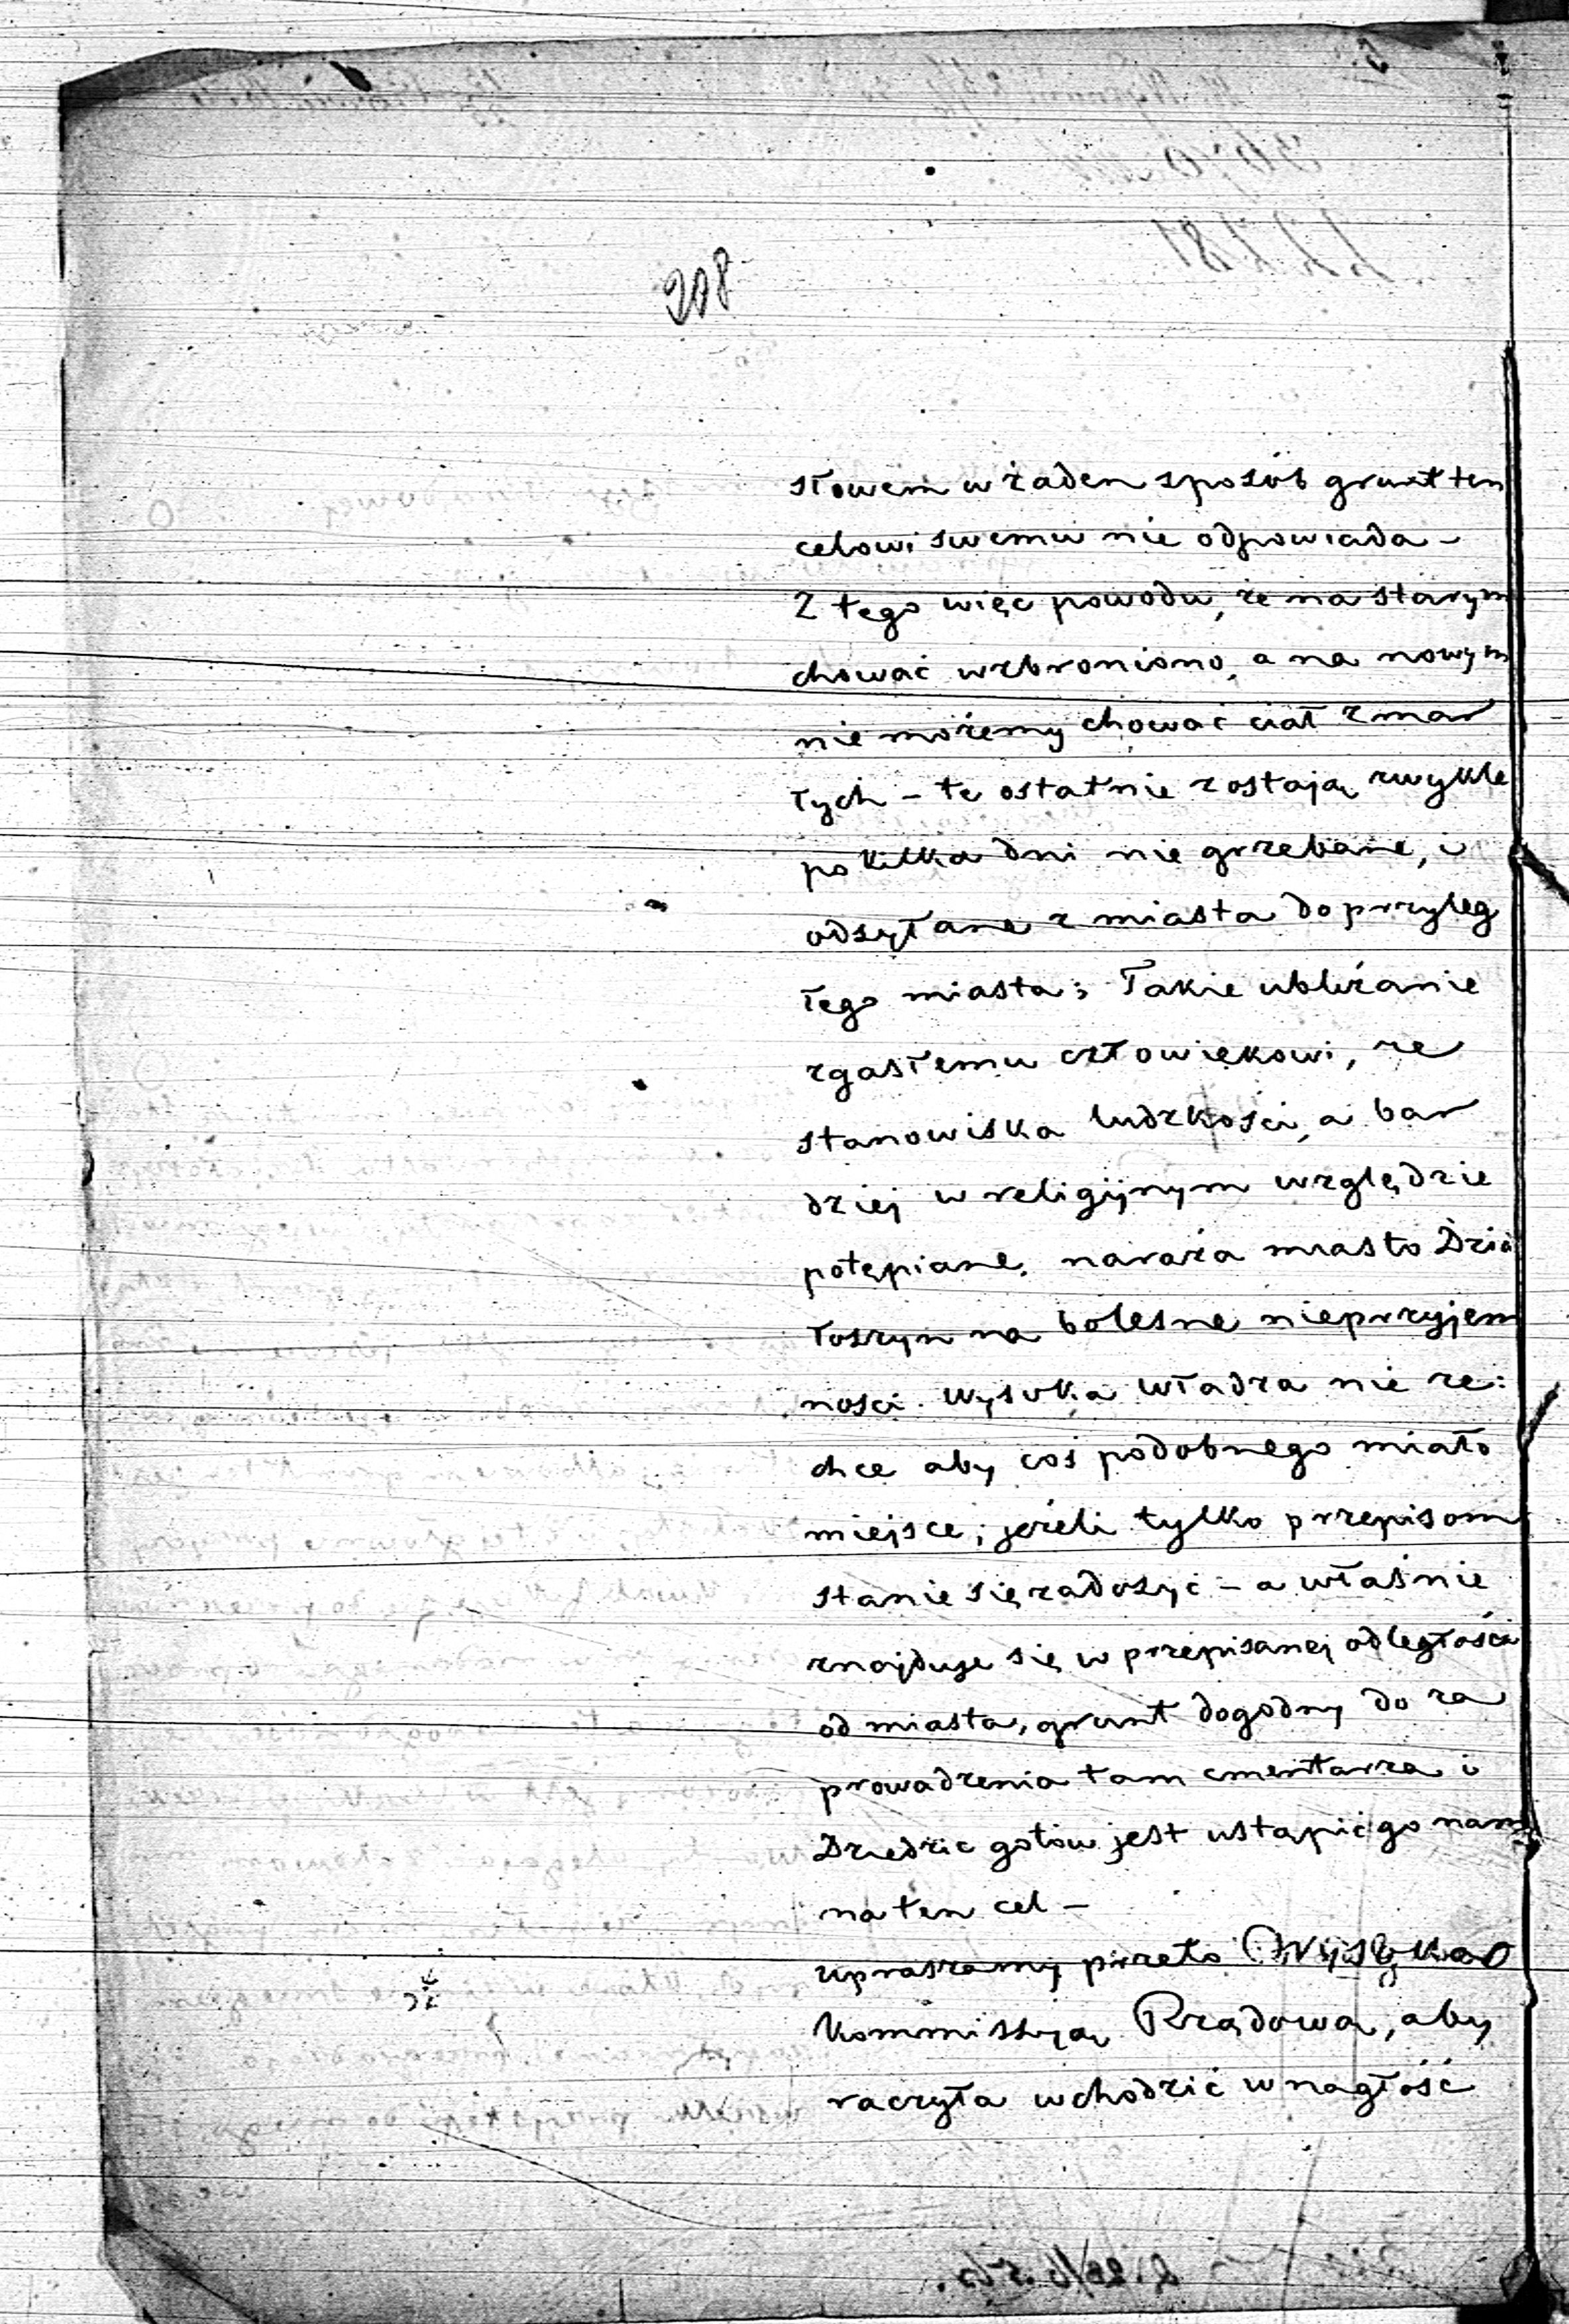 208
słowem w żaden sposób grunt ten
celowi swemu nie odpowiada -
Z tego więc powodu, że na starym
chować wzbroniono, a na nowym
nie możemy chować ciał zmar
łych - te ostatnie zostają zwykle
po kilka dni nie grzebane, i
odsyłane z miasta do przyleg
łego miasta; Takie ubliżanie
zgasłemu człowiekowi, ze
stanowiska ludzkości, a bar
dziej w religijnym względzie
potępiane, naraża miasto Dzia
łoszyn na bolesne nieprzyjem
ności. Wysoka Władza nie ze:
chce aby coś podobnego miało
miejsce, jeżeli tylko przepisom
stanie się zadosyć - a właśnie
znajduje się w przepisanej odległości
od miasta, grunt dogodny do za
prowadzenia tam cmentarza i
Dziedzic gotów jest ustąpić go nam
na ten cel -
upraszamy przeto Wysoką
Kommissyą Rządowa, aby
raczyła wchodzić w nagłość